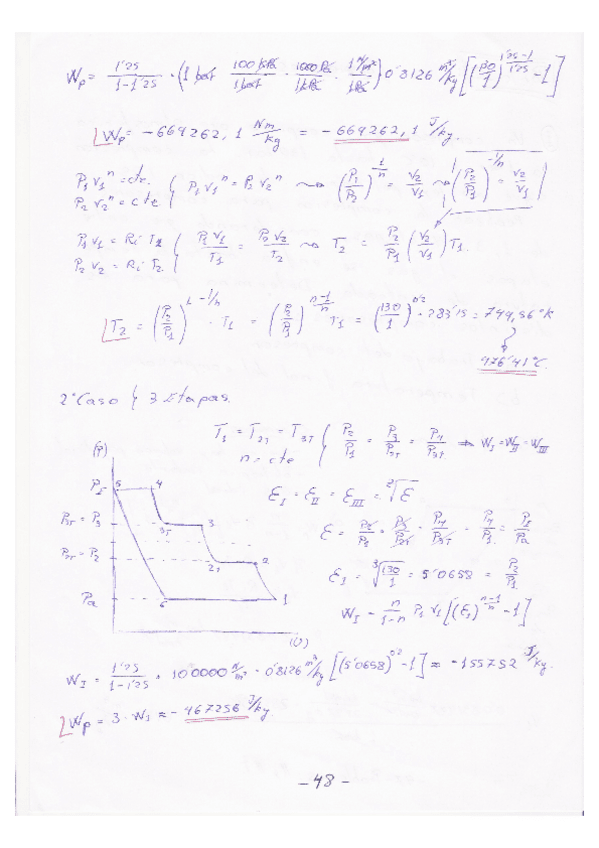 Wp = 1'25 / (1-1'25) · (1 bar · 100 kPa / 1 bar · 1000 Pa / 1 kPa · 1 N/m² / 1 Pa) 0'8126 m³/kg [(130/1)^((1'25-1)/1'25) - 1]
Wp = -669262,1 Nm/kg = -669262,1 J/kg.
P1 v1^n = cte.
P2 v2^n = cte { P1 v1^n = P2 v2^n ⇝ (P1/P2)^(1/n) = v2/v1 ⇝ (P2/P1)^(-1/n) = v2/v1
P1 v1 = Ri T1
P2 v2 = Ri T2 { P1 v1 / T1 = P2 v2 / T2 ⇝ T2 = P2/P1 (v2/v1) T1.
T2 = (P2/P1)^(1-1/n) · T1 = (P2/P1)^((n-1)/n) T1 = (130/1)^0'2 · 283'15 = 749,56 °K
476'41 °C.
2º Caso { 3 Etapas.
T1 = T2T = T3T
n = cte { P2/P1 = P3/P2T = P4/P3T ⇒ WI = WII = WIII
(P)
εI = εII = εIII = ∛ε
5 4
P3T = P3 3T 3
ε = P2/P1 · P3/P2T · P4/P3T = P4/P1 =
P2T = P2 2T 2
εI = ∛(130/1) = 5'0658 = P2/P1
Pa 6 1
WI = n/(1-n) P1 v1 [(εI)^((n-1)/n) - 1]
WI = 1'25 / (1-1'25) · 100000 N/m² · 0'8126 m³/kg [(5'0658)^0'2 - 1] ≈ -155752 J/kg.
Wp = 3 · WI ≈ -467256 J/kg.
-48-